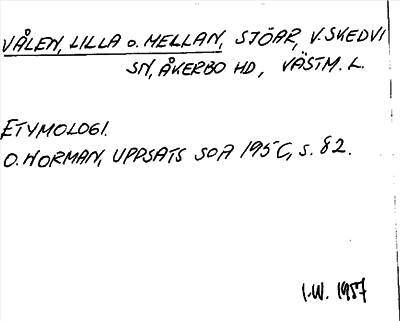 VÅLEN, LILLA o. MELLAN, SJÖAR, V. SKEDVI
SN, ÅKERBO HD, VÄSTM. L.
ETYMOLOGI.
O. NORMAN, UPPSATS SOA 195C, S. 82.
I.W. 1957